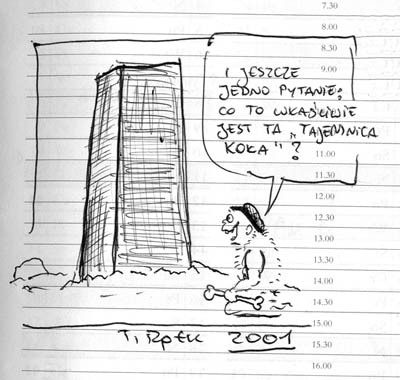 7.30
8.00
8.30
9.00
I JESZCZE
JEDNO PYTANIE:
CO TO WŁAŚCIWIE
JEST TA „TAJEMNICA
KOKA" ?
11.00
11.30
12.00
12.30
13.00
13.30
14.00
14.30
15.00
2001
15.30
16.00